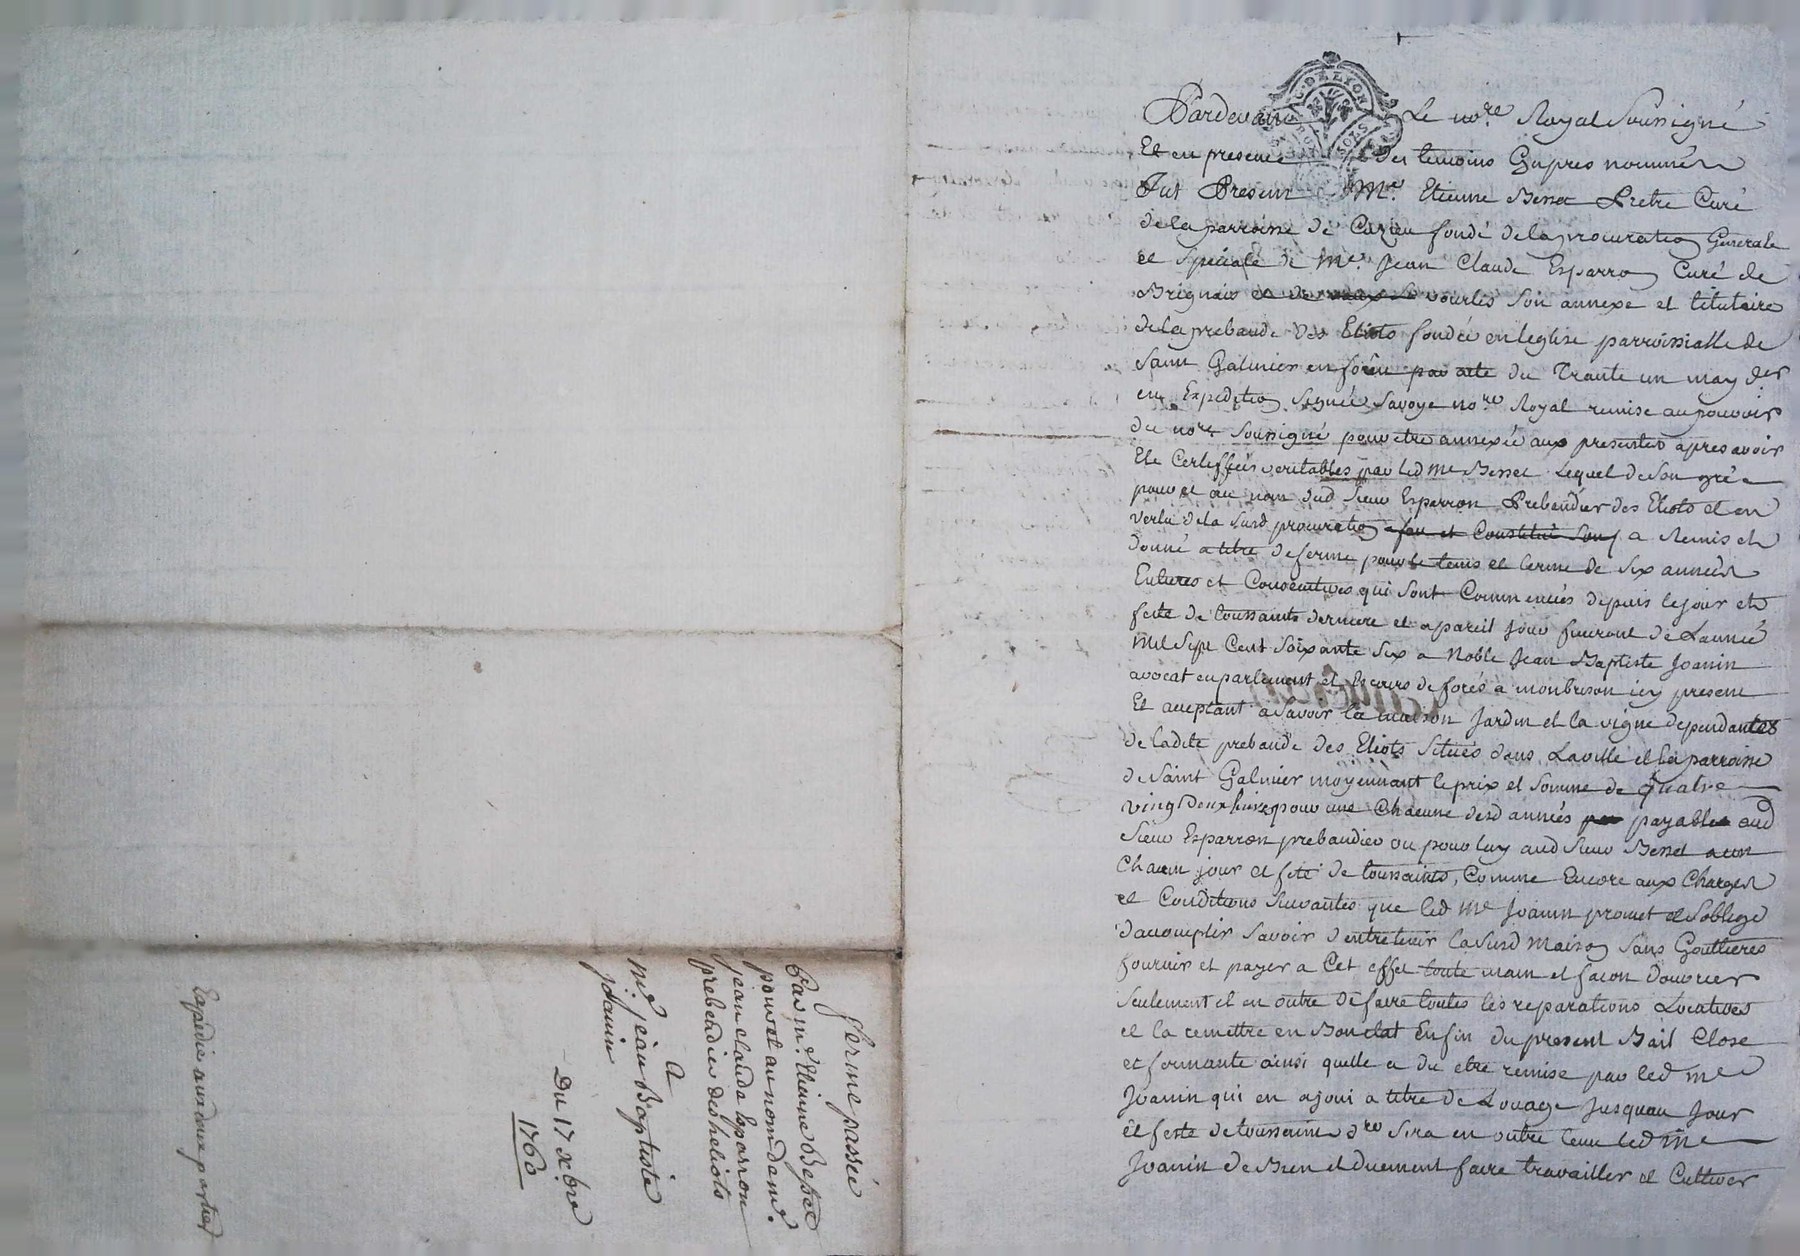 Pardevant Le no.re Royal Soussigné
Et en presence des temoins Cyapres nommés
Fut Present Me. Etienne Besset Pretre Curé
de la parroisse de Cuzieu fondé de la procuration Generale
et speciale de Me. Jean Claude Esparron Curé de
Brignais vourles son annexe et titulaire
de la prebande des Eliots fondée en leglise parroissialle de
Saint Galmier en forêu du Trante un may der
en Expedition Signée Savoye no.re Royal remise au pouvoir
du no.re soussigné pour etre annexée aux presentes apres avoir
Ete Certiffiée veritables par led Me Besset Lequel de Son gré
pour et au nom dud Sieur Esparron Prebandier des Eliots et en
vertu de la Susd procuration a fait et Constitué Son a Remis et
donné a titre de ferme pour le tems et terme de Six années
Entieres et Consecutives qui sont Commencées depuis le jour et
feste de toussaints derniere et a pareil jour finiront de Lannée
Mil Sept Cent Soixante Six a Noble Jean Baptiste Joanin
avocat en parlement et Es cours de forés a monbrison icy present
Et acceptant a Savoir la maison Jardin et la vigne dependantes
de ladite prebande des Eliots Situés dans Laville et la parroisse
de Saint Galmier moyennant le prix et Somme de quatre
vingt Deux livres pour une Chacune desd années payables aud
Sieur Esparron prebandier ou pour luy aud Sieur Besset
Chacun jour et fete de toussaints, Comme Encore aux Charges
et Conditions Suivantes que led Me Joanin promet et Soblige
daccomplir Savoir d entretenir la Susd Maison Sans Gouttieres
fournir et payer a Cet effet toute main et facon d'ouvrier
Seulement et en outre de faire toutes les reparations Locatives
et la remettre en Bon etat En fin du present Bail Close
et fermante ainsi quelle a du etre remise par led Me
Joanin qui en a joui a titre de Louage Jusquau Jour
et feste de toussaint d.re Sera en outre tenu led Me
Joanin de Bien et duement faire travailler et Cultiver
ferme passée
Par mr. Etienne Besset
pour et au nom de mr.
jean claude Esparron
prebendier des heliots
A
Mr. jean Baptiste
joanin
Du 17 xbre
1760
Expedié aux deux parties